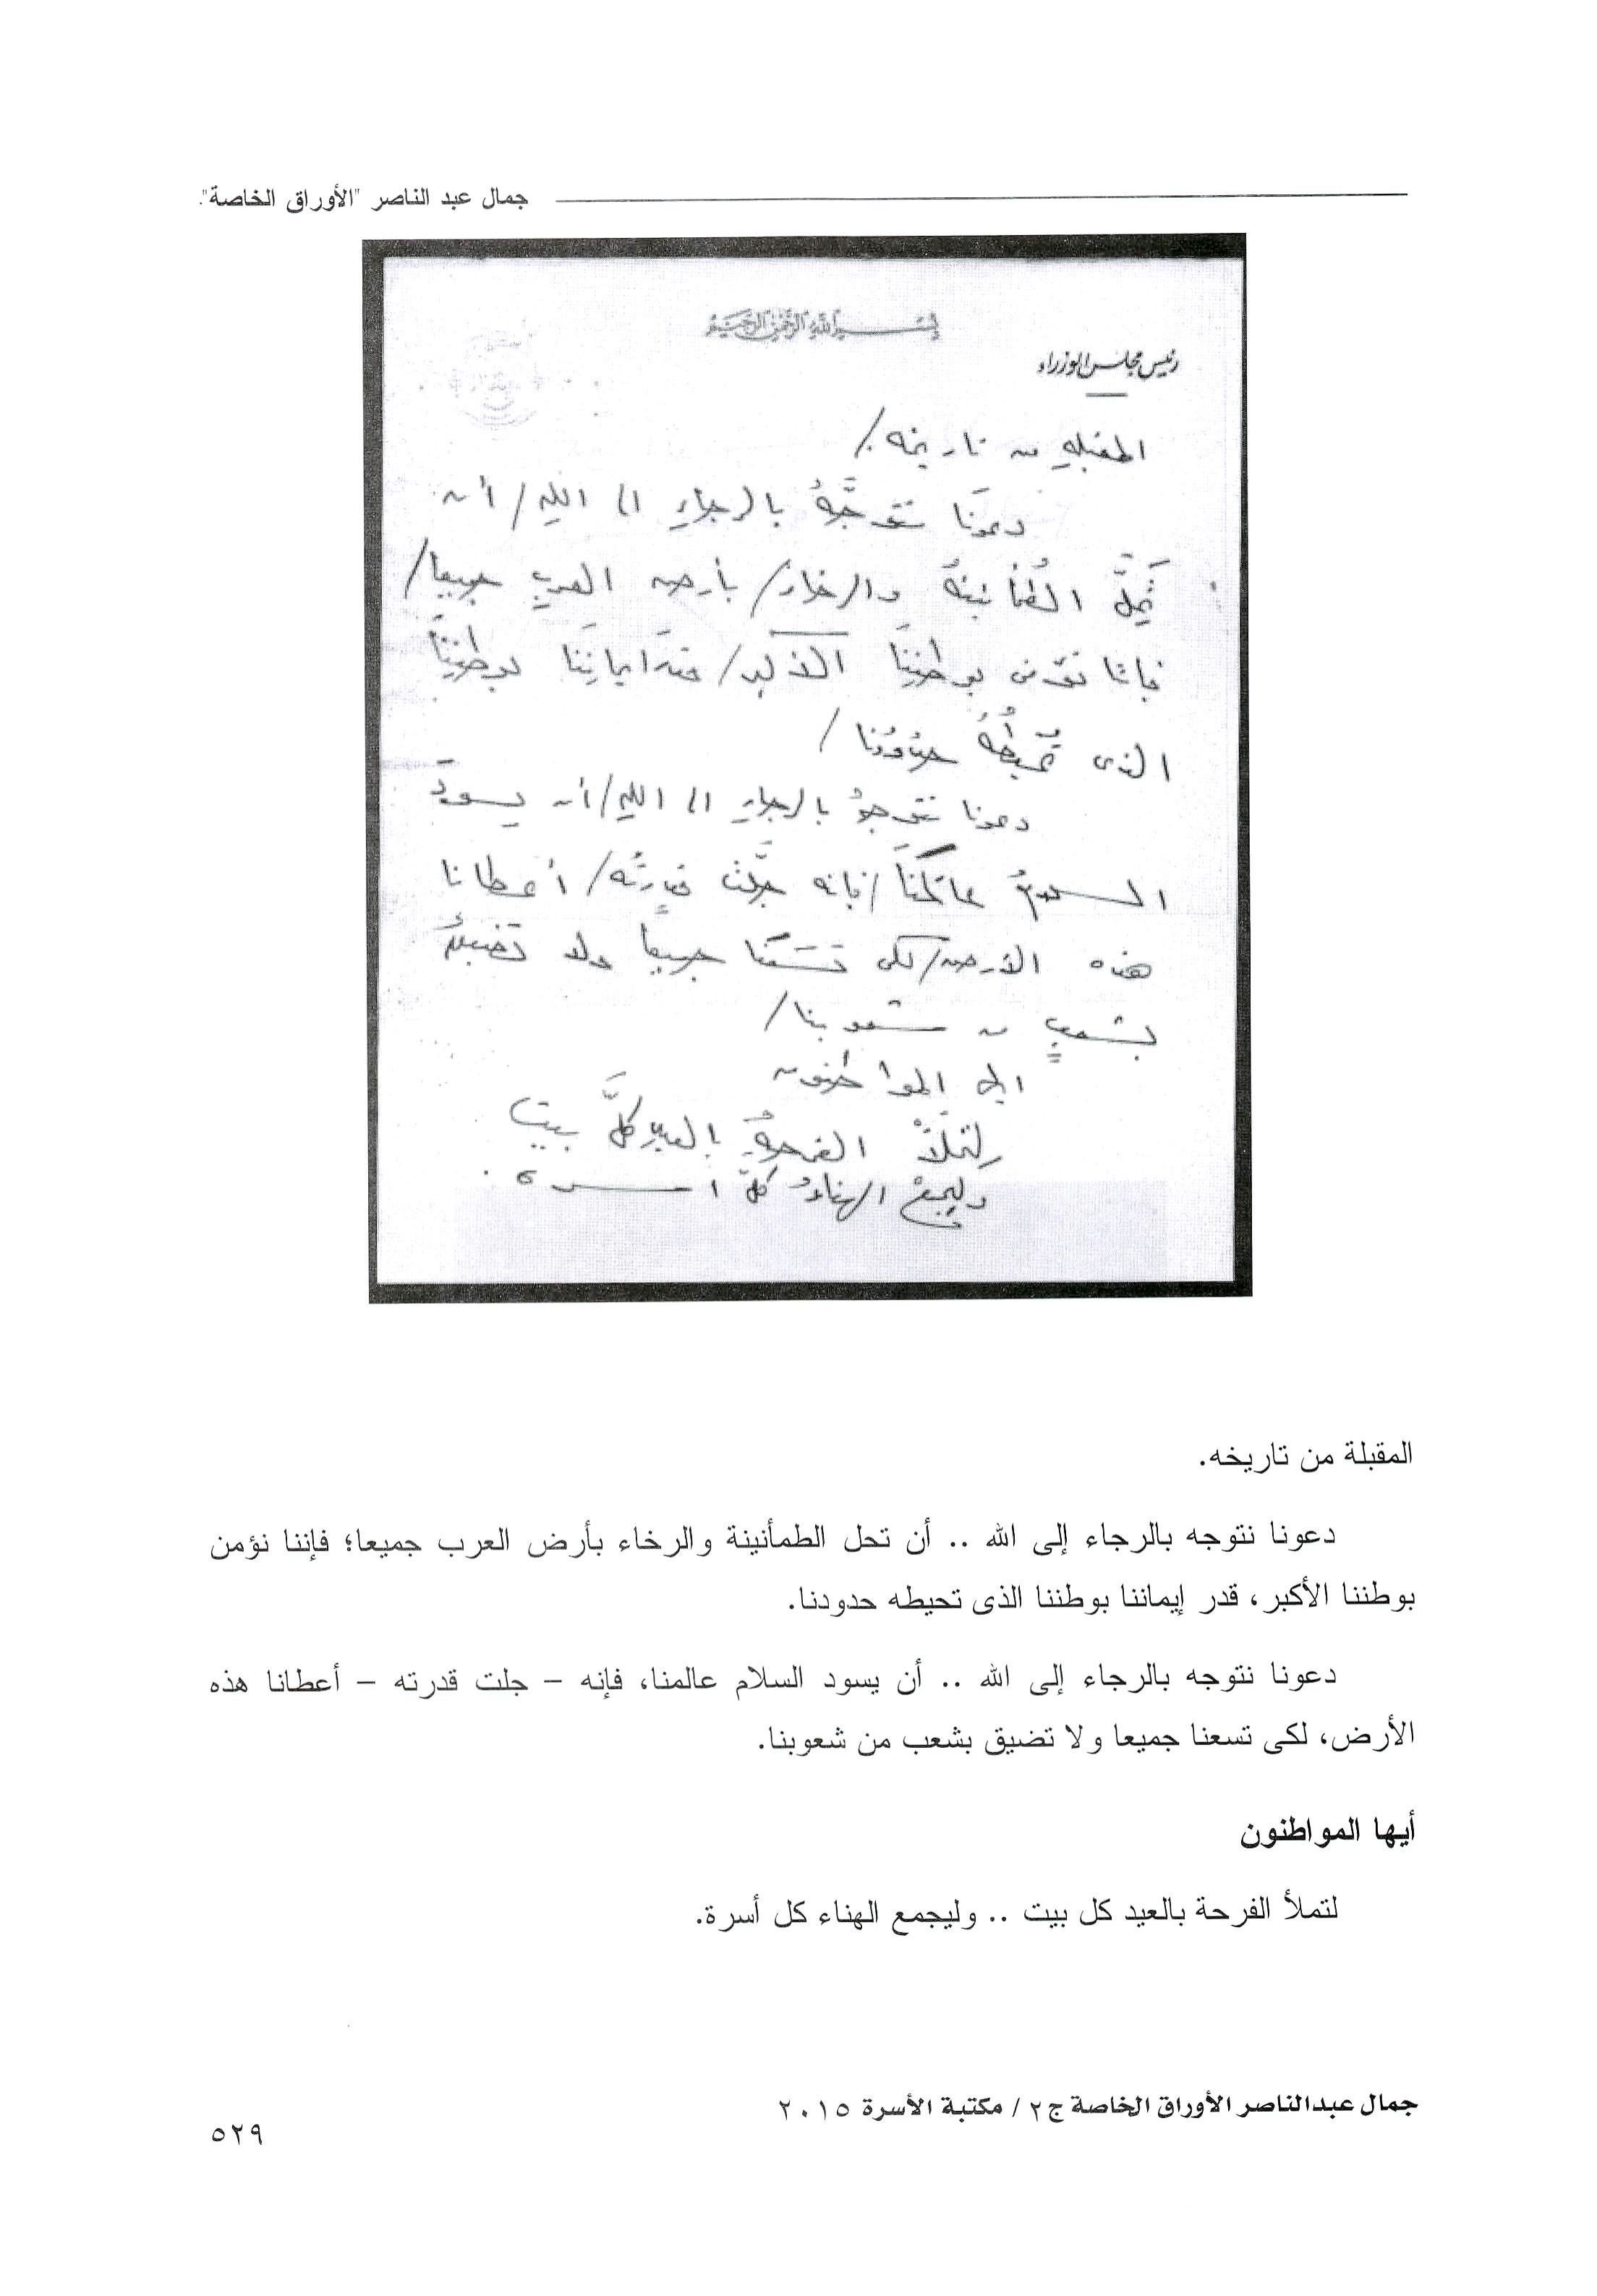 جمال عبد الناصر "الأوراق الخاصة".
بسم الله الرحمن الرحيم
رئيس مجلس الوزراء
المقبله من تاريخه /
دعونَا نتوجَّهُ بالرجاءِ الى اللهِ / أن
تحلَّ الطمأنينهُ والرخاءُ / بأرض العربِ جميعاً /
فاننا نؤمن بوطنِنَا الأكبر / قدرَ ايمانِنَا بوطنِنَا
الذى تحيطُهُ حدودُنا /
دعونا نتوجهُ بالرجاءِ الى اللهِ / أن يسودَ
السلامُ عالمَنَا / فإنه جلَّت قدرتُه / أعطانا
هذه الأرض / لكى تسعَنا جميعاً ولا تضيقُ
بشعبٍ من شعوبنا /
ايها المواطنون
لتملأْ الفرحةُ بالعيدِ كلَّ بيت
وليجمعْ الهناءُ كلَّ اسرة .
المقبلة من تاريخه.
دعونا نتوجه بالرجاء إلى الله .. أن تحل الطمأنينة والرخاء بأرض العرب جميعا؛ فإننا نؤمن
بوطننا الأكبر، قدر إيماننا بوطننا الذى تحيطه حدودنا.
دعونا نتوجه بالرجاء إلى الله .. أن يسود السلام عالمنا، فإنه – جلت قدرته – أعطانا هذه
الأرض، لكى تسعنا جميعا ولا تضيق بشعب من شعوبنا.
أيها المواطنون
لتملأ الفرحة بالعيد كل بيت .. وليجمع الهناء كل أسرة.
جمال عبدالناصر الأوراق الخاصة ج٢ / مكتبة الأسرة ٢٠١٥
٥٢٩